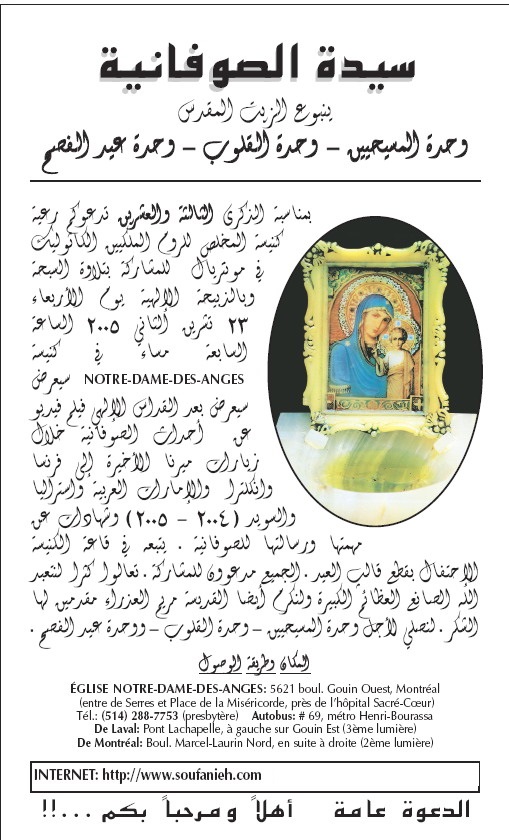 سيدة الصوفانية
ينبوع الزيت المقدس
وحدة المسيحيين – وحدة القلوب – وحدة عيد الفصح
بمناسبة الذكرى الثالثة والعشرين تدعوكم رعية
كنيسة المخلص للروم الملكيين الكاثوليك
في مونتريال للمشاركة بتلاوة السبحة
وبالذبيحة الإلهية يوم الأربعاء
٢٣ تشرين الثاني ٢٠٠٥ الساعة
السابعة مساء في كنيسة
NOTRE-DAME-DES-ANGES سيعرض
سيعرض بعد القداس الإلهي فيلم فيديو
عن أحداث الصوفانية خلال
زيارات ميرنا الأخيرة إلى فرنسا
وانكلترا والإمارات العربية واستراليا
والسويد (٢٠٠٤ – ٢٠٠٥) وشهادات عن
مهمتها ورسالتها للصوفانية . يتبعه في قاعة الكنيسة
الإحتفال بقطع قالب العيد . الجميع مدعوون للمشاركة . تعالوا كثرا لنتعبد
الله الصانع العظائم الكبيرة ولنكرم أيضا القديسة مريم العذراء مقدمين لها
الشكر . لنصلي لأجل وحدة المسيحيين – وحدة القلوب – ووحدة عيد الفصح .
المكان وطريقة الوصول
ÉGLISE NOTRE-DAME-DES-ANGES: 5621 boul. Gouin Ouest, Montréal
(entre de Serres et Place de la Miséricorde, près de l'hôpital Sacré-Cœur)
Tél.: (514) 288-7753 (presbytère) Autobus: # 69, métro Henri-Bourassa
De Laval: Pont Lachapelle, à gauche sur Gouin Est (3ème lumière)
De Montréal: Boul. Marcel-Laurin Nord, en suite à droite (2ème lumière)
INTERNET: http://www.soufanieh.com
الدعوة عامة أهلاً ومرحباً بكم ...!!